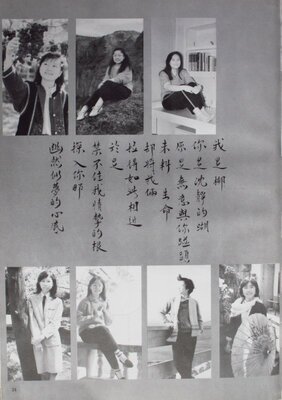 我是柳
你是沈靜的湖
原是無意與你踫頭
未料生命
卻將我倆
得如此相近
於是
禁不住我情的根
探入你那
幽然似夢的心底